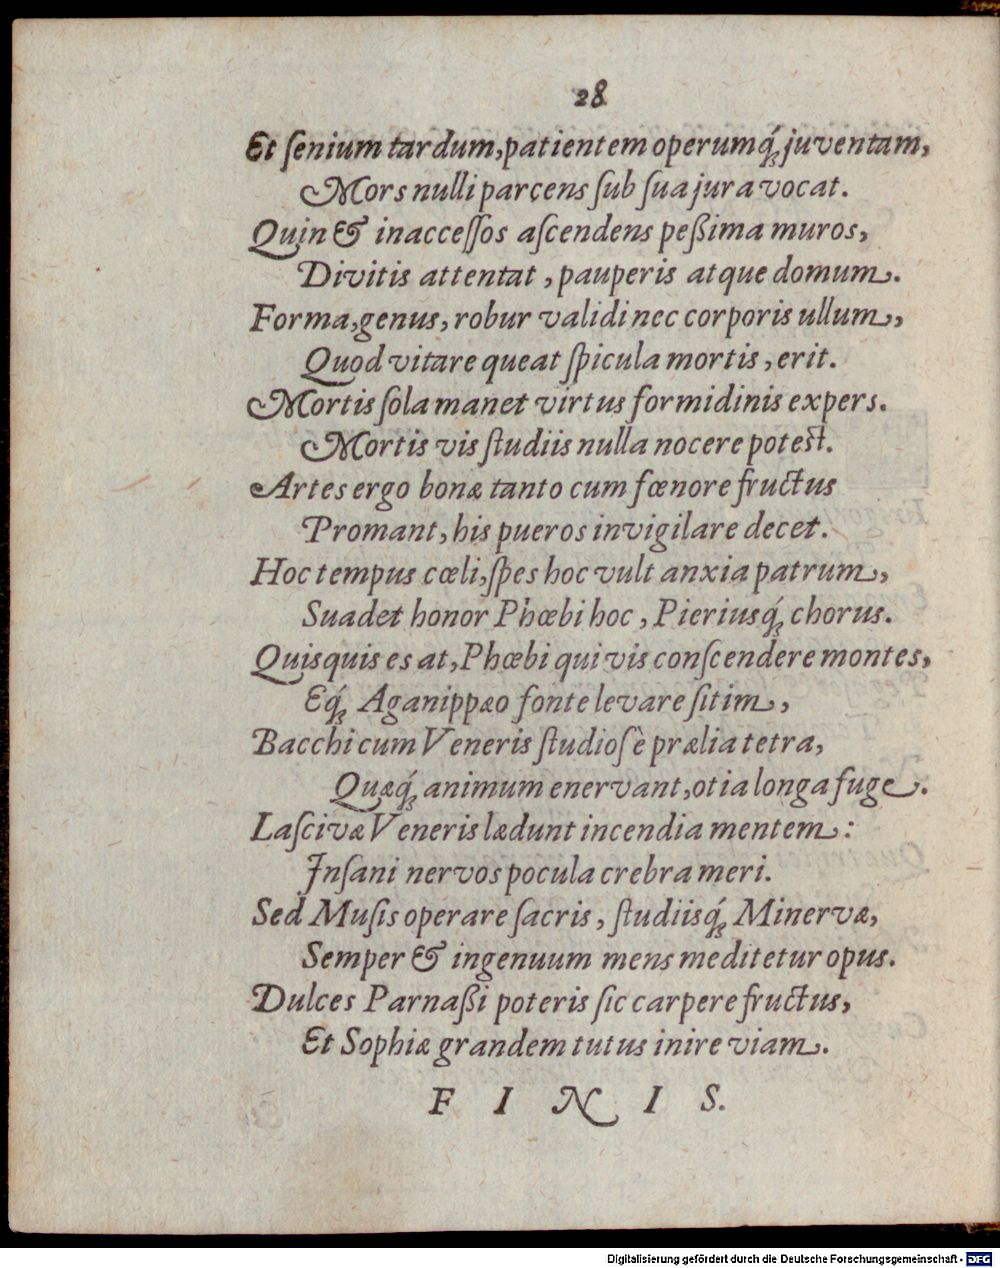 28
Et ſenium tardum, patientem operumq́; juventam,
Mors nulli parcens ſub ſua jura vocat.
Quin & inacceſſos aſcendens peßima muros,
Divitis attentat, pauperis atque domum.
Forma, genus, robur validi nec corporis ullum,
Quod vitare queat ſpicula mortis, erit.
Mortis ſola manet virtus formidinis expers.
Mortis vis ſtudiis nulla nocere poteſt.
Artes ergo bonæ tanto cum fœnore fructus
Promant, his pueros invigilare decet.
Hoc tempus cœli, ſpes hoc vult anxia patrum,
Suadet honor Phœbi hoc, Pieriusq́; chorus.
Quisquis es at, Phœbi qui vis conſcendere montes,
Eq́; Aganippæo fonte levare ſitim,
Bacchi cum Veneris ſtudioſè prælia tetra,
Quæq́; animum enervant, otia longa fuge.
Laſcivæ Veneris lædunt incendia mentem:
Inſani nervos pocula crebra meri.
Sed Muſis operare ſacris, ſtudiisq́; Minervæ,
Semper & ingenuum mens meditetur opus.
Dulces Parnaßi poteris ſic carpere fructus,
Et Sophiæ grandem tutus inire viam.
F I N I S.
Digitalisierung gefördert durch die Deutsche Forschungsgemeinschaft - DFG